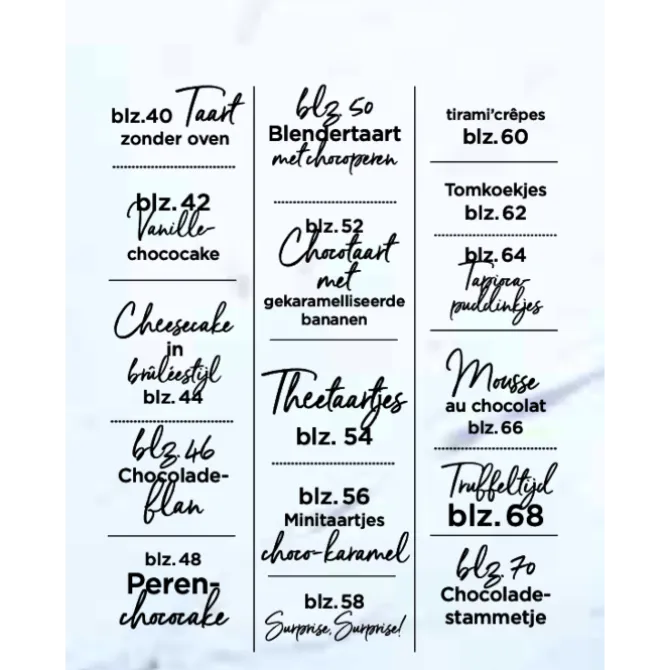 blz.40 Taart
zonder oven
blz.42
Vanille-
chococake
Cheesecake
in
brûléestijl
blz.44
blz.46
Chocolade-
flan
blz.48
Peren-
chococake
blz 50
Blendertaart
met chocoperen
blz.52
Chocotaart
met
gekaramelliseerde
bananen
Theetaartjes
blz. 54
blz.56
Minitaartjes
choco-karamel
blz.58
Surprise, Surprise!
tirami'crêpes
blz.60
Tomkoekjes
blz.62
blz.64
Tapioca-
puddinkjes
Mousse
au chocolat
blz.66
Truffeltijd
blz.68
blz.70
Chocolade-
stammetje